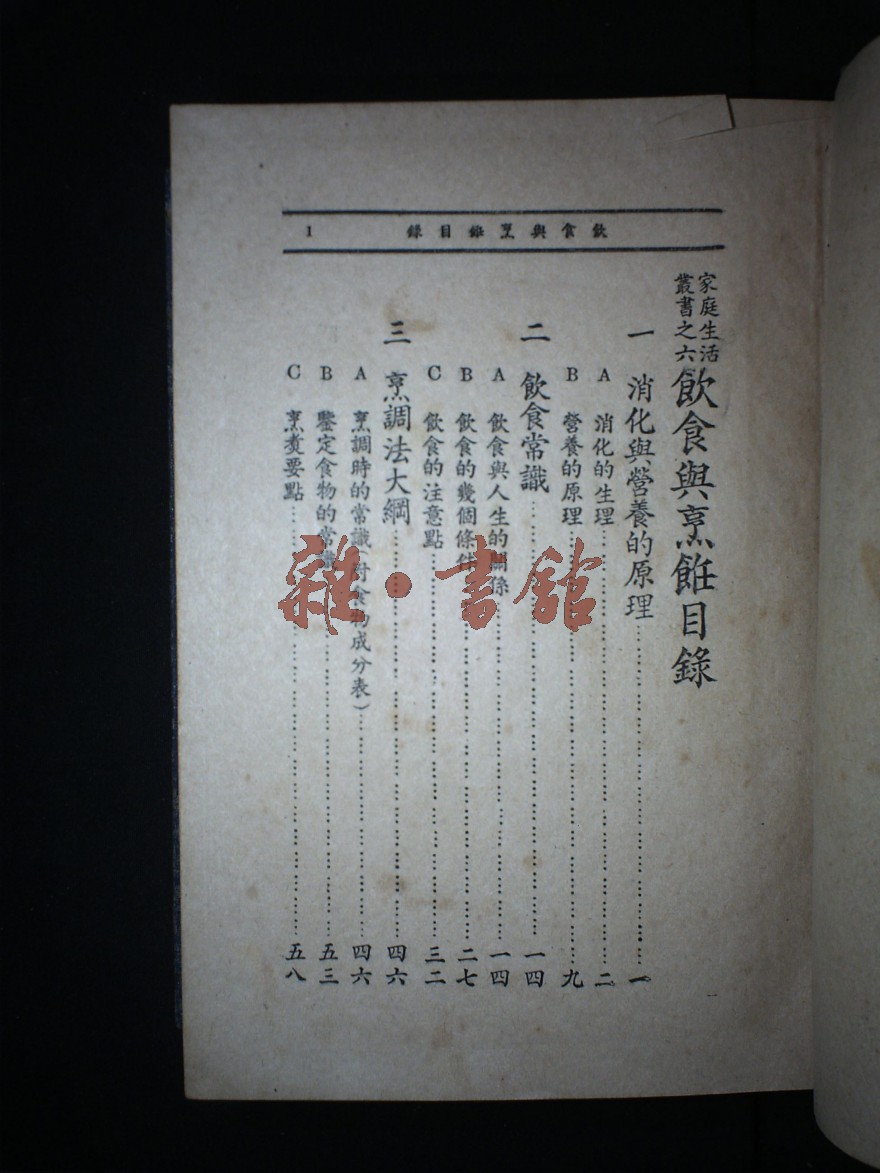 飲食與烹飪目錄 1
家庭生活
叢書之六
飲食與烹飪目錄
一 消化與營養的原理……一
A 消化的生理……二
B 營養的原理……九
二 飲食常識……一四
A 飲食與人生的關係……一四
B 飲食的幾個條件……二七
C 飲食的注意點……三二
三 烹調法大綱……四六
A 烹調時的常識(附食物成分表)……四六
B 鑒定食物的常識……五三
C 烹煑要點……五八
雜·書館